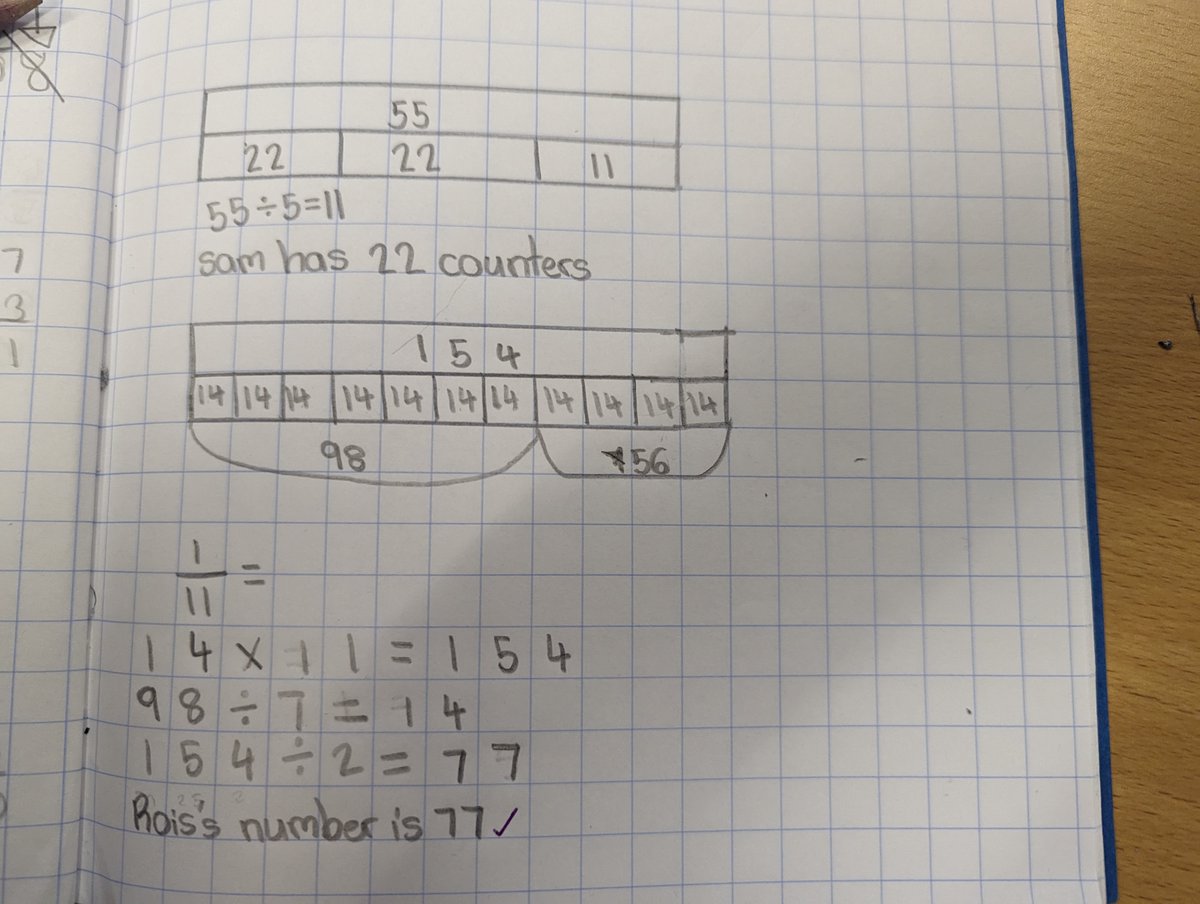 55
22 22 11
55÷5=11
sam has 22 counters
154
14 14 14 14 14 14 14 14 14 14 14
98 56
1/11 =
14 × 11 = 154
98 ÷ 7 = 14
154 ÷ 2 = 77
Rois's number is 77 ✓
7
3
1